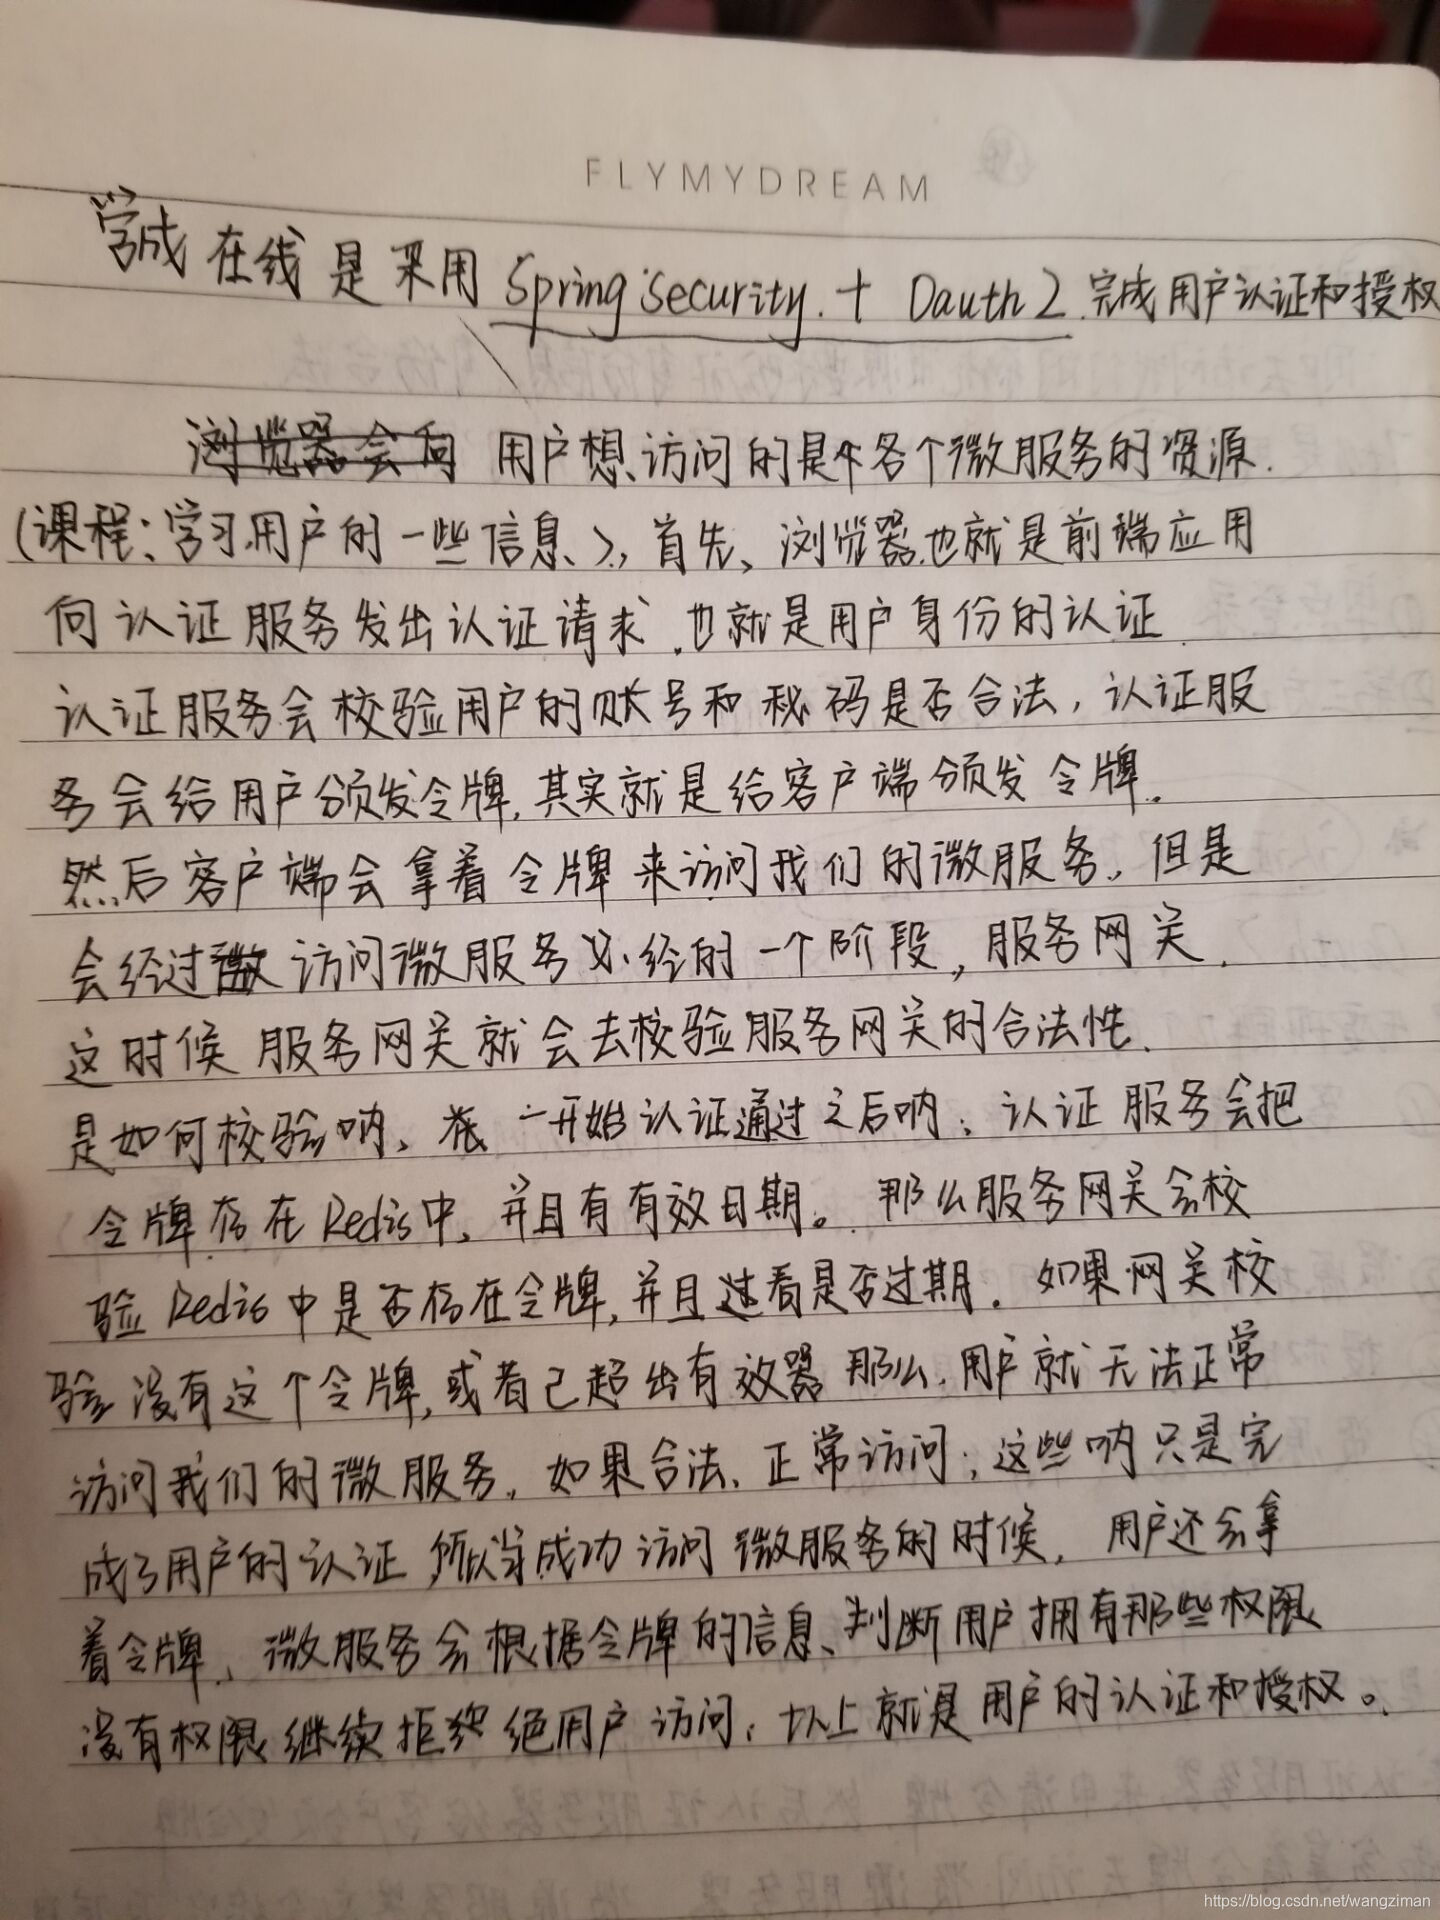 FLYMYDREAM
学成在线是采用 Spring Security. + Oauth2.完成用户认证和授权
浏览器会向 用户想访问的是各个微服务的资源.
(课程、学习、用户的一些信息、), 首先、浏览器.也就是前端应用
向认证服务发出认证请求.也就是用户身份的认证
认证服务会校验用户的账号和秘码是否合法,认证服
务会给用户颁发令牌,其实就是给客户端颁发令牌。
然后客户端会拿着令牌来访问我们的微服务,但是
会经过 访问微服务必经的一个阶段,服务网关.
这时候服务网关就会去校验服务网关的合法性.
是如何校验呐、 一开始认证通过之后呐,认证服务会把
令牌存在Redis中,并且有有效日期。那么服务网关会校
验Redis中是否存在令牌,并且过看是否过期.如果网关校
验没有这个令牌,或者已超出有效器 那么.用户就无法正常
访问我们的微服务,如果合法、正常访问,这些呐只是完
成了用户的认证 所以当成功访问微服务的时候,用户还会拿
着令牌、微服务会根据令牌的信息、判断用户拥有那些权限
没有权限继续拒 绝用户访问,以上就是用户的认证和授权。
https://blog.csdn.net/wangziman